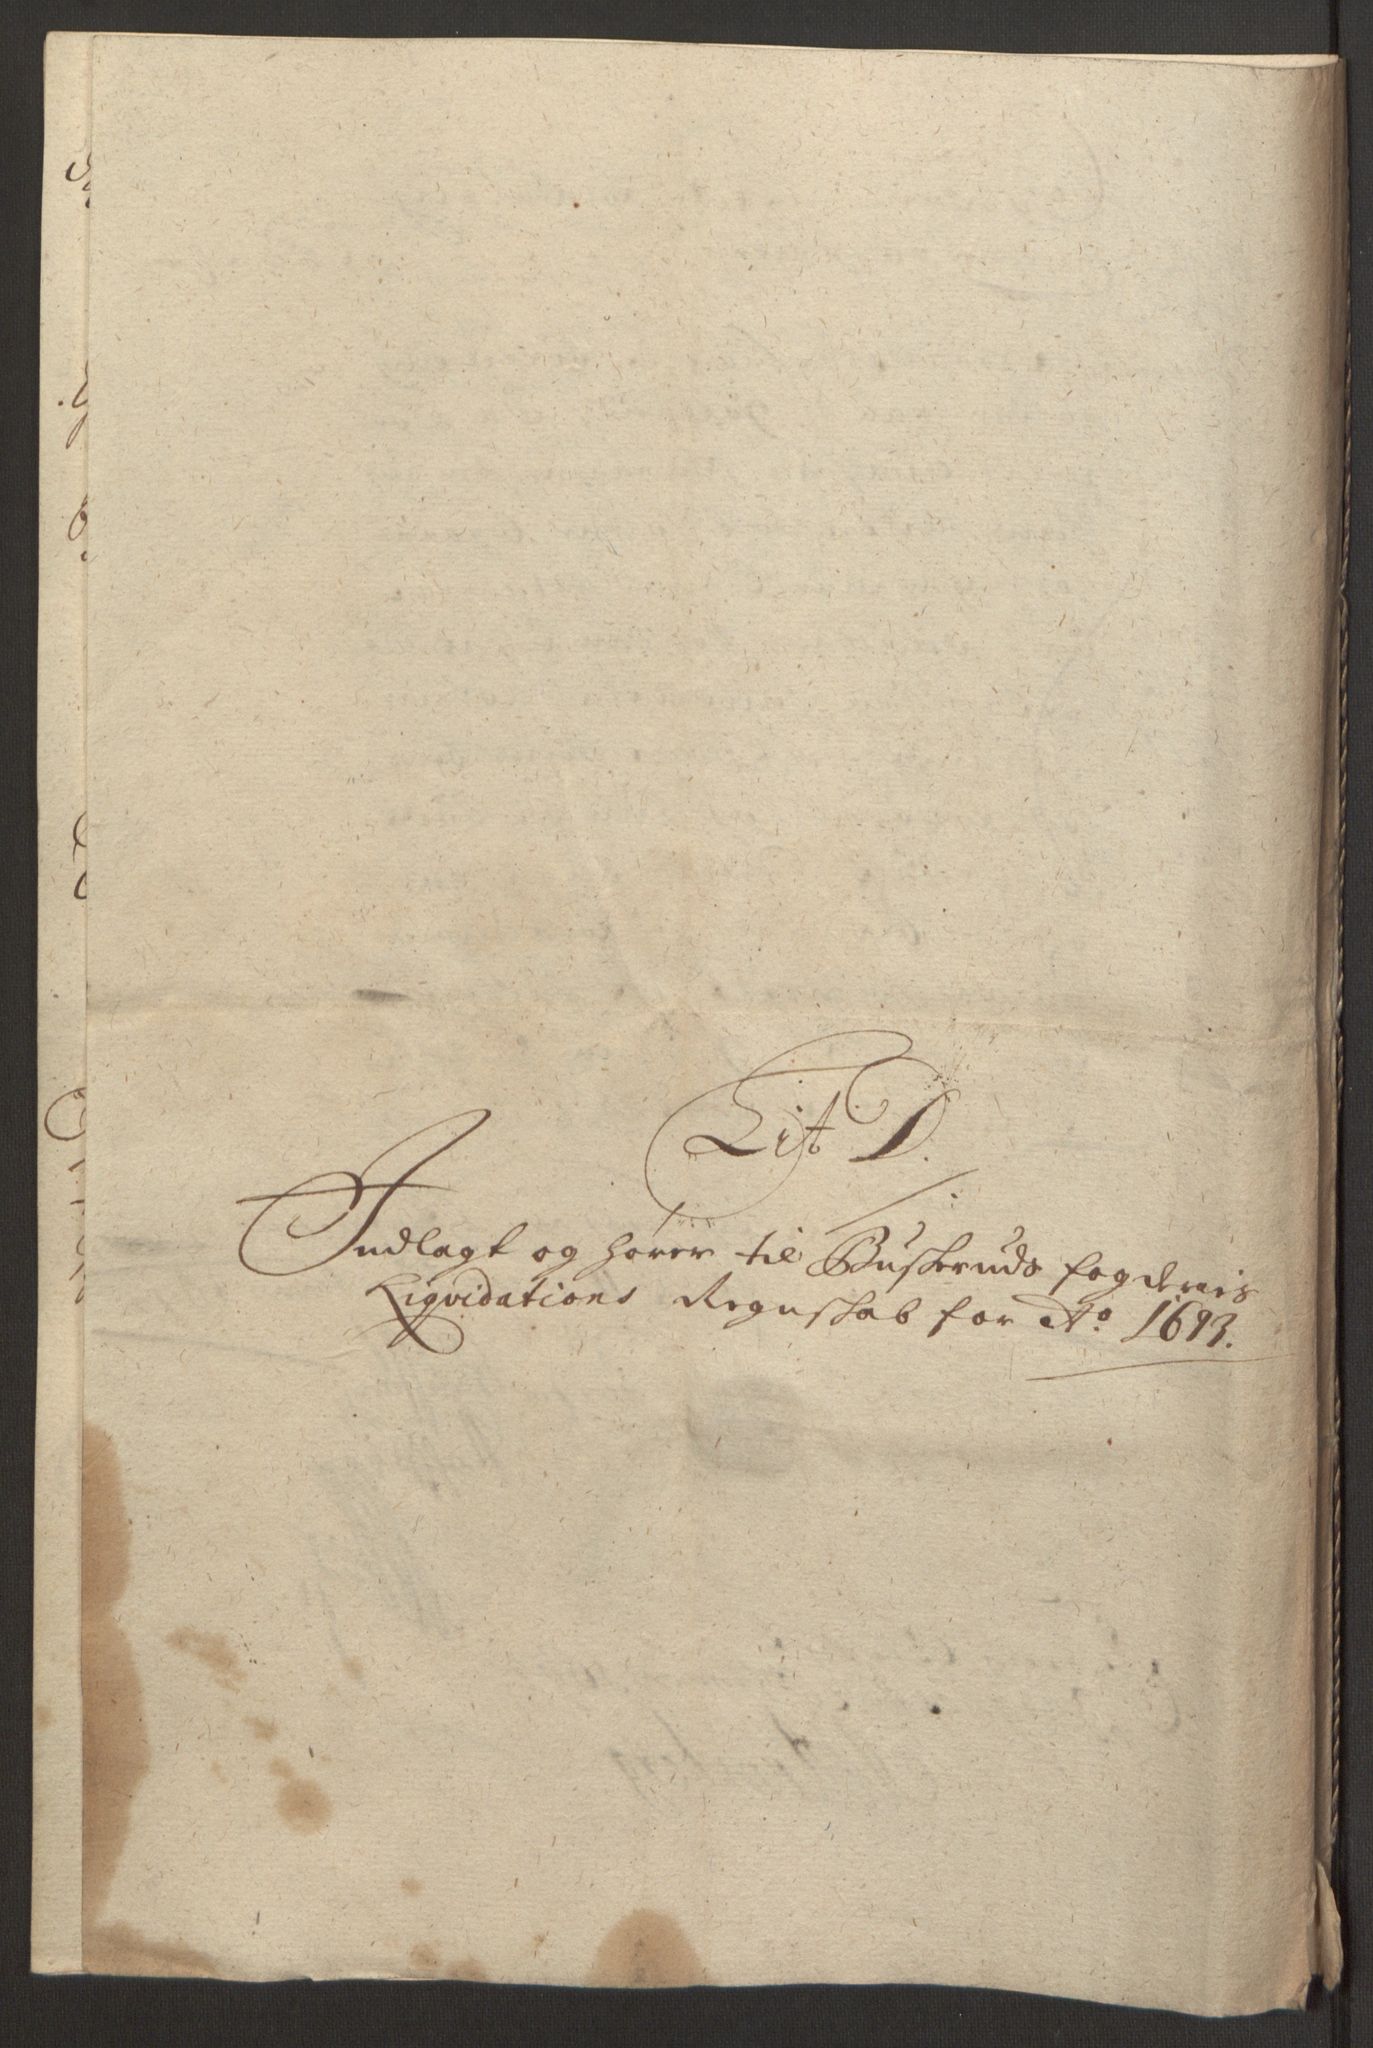 Lit D.
Indlagt og hører til Buskeruds fogderies
Liqvidations Regnskab for Ao 1693.